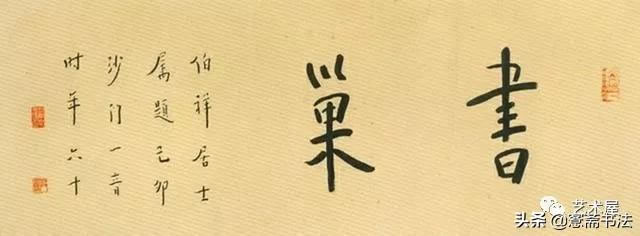 書巢
伯祥居士
属題己卯
沙门一音
时年六十
艺术屋
头条 @憲斋书法